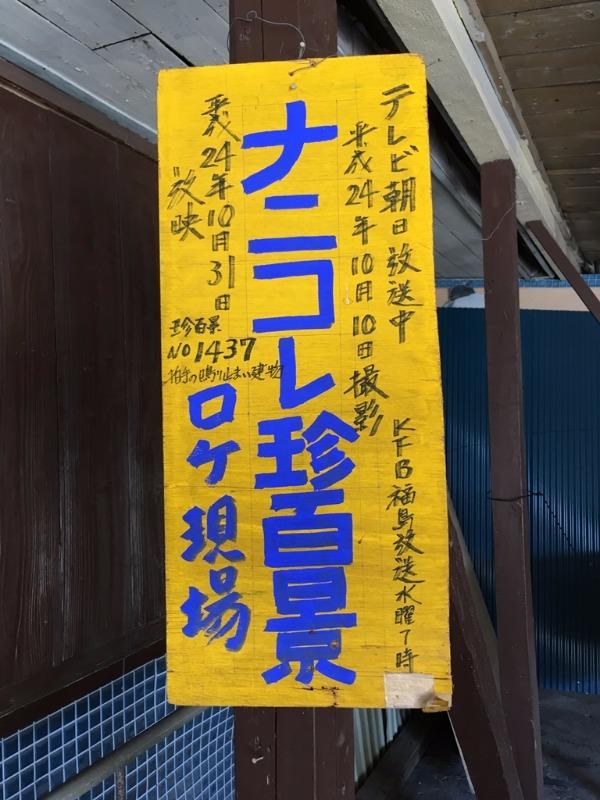 テレビ朝日放送中 KFB福島放送水曜7時
平成24年10月10日撮影
ナニコレ珍百景
平成24年10月31日
放映
珍百景
NO1437
拍手の鳴り止まい建物
ロケ現場